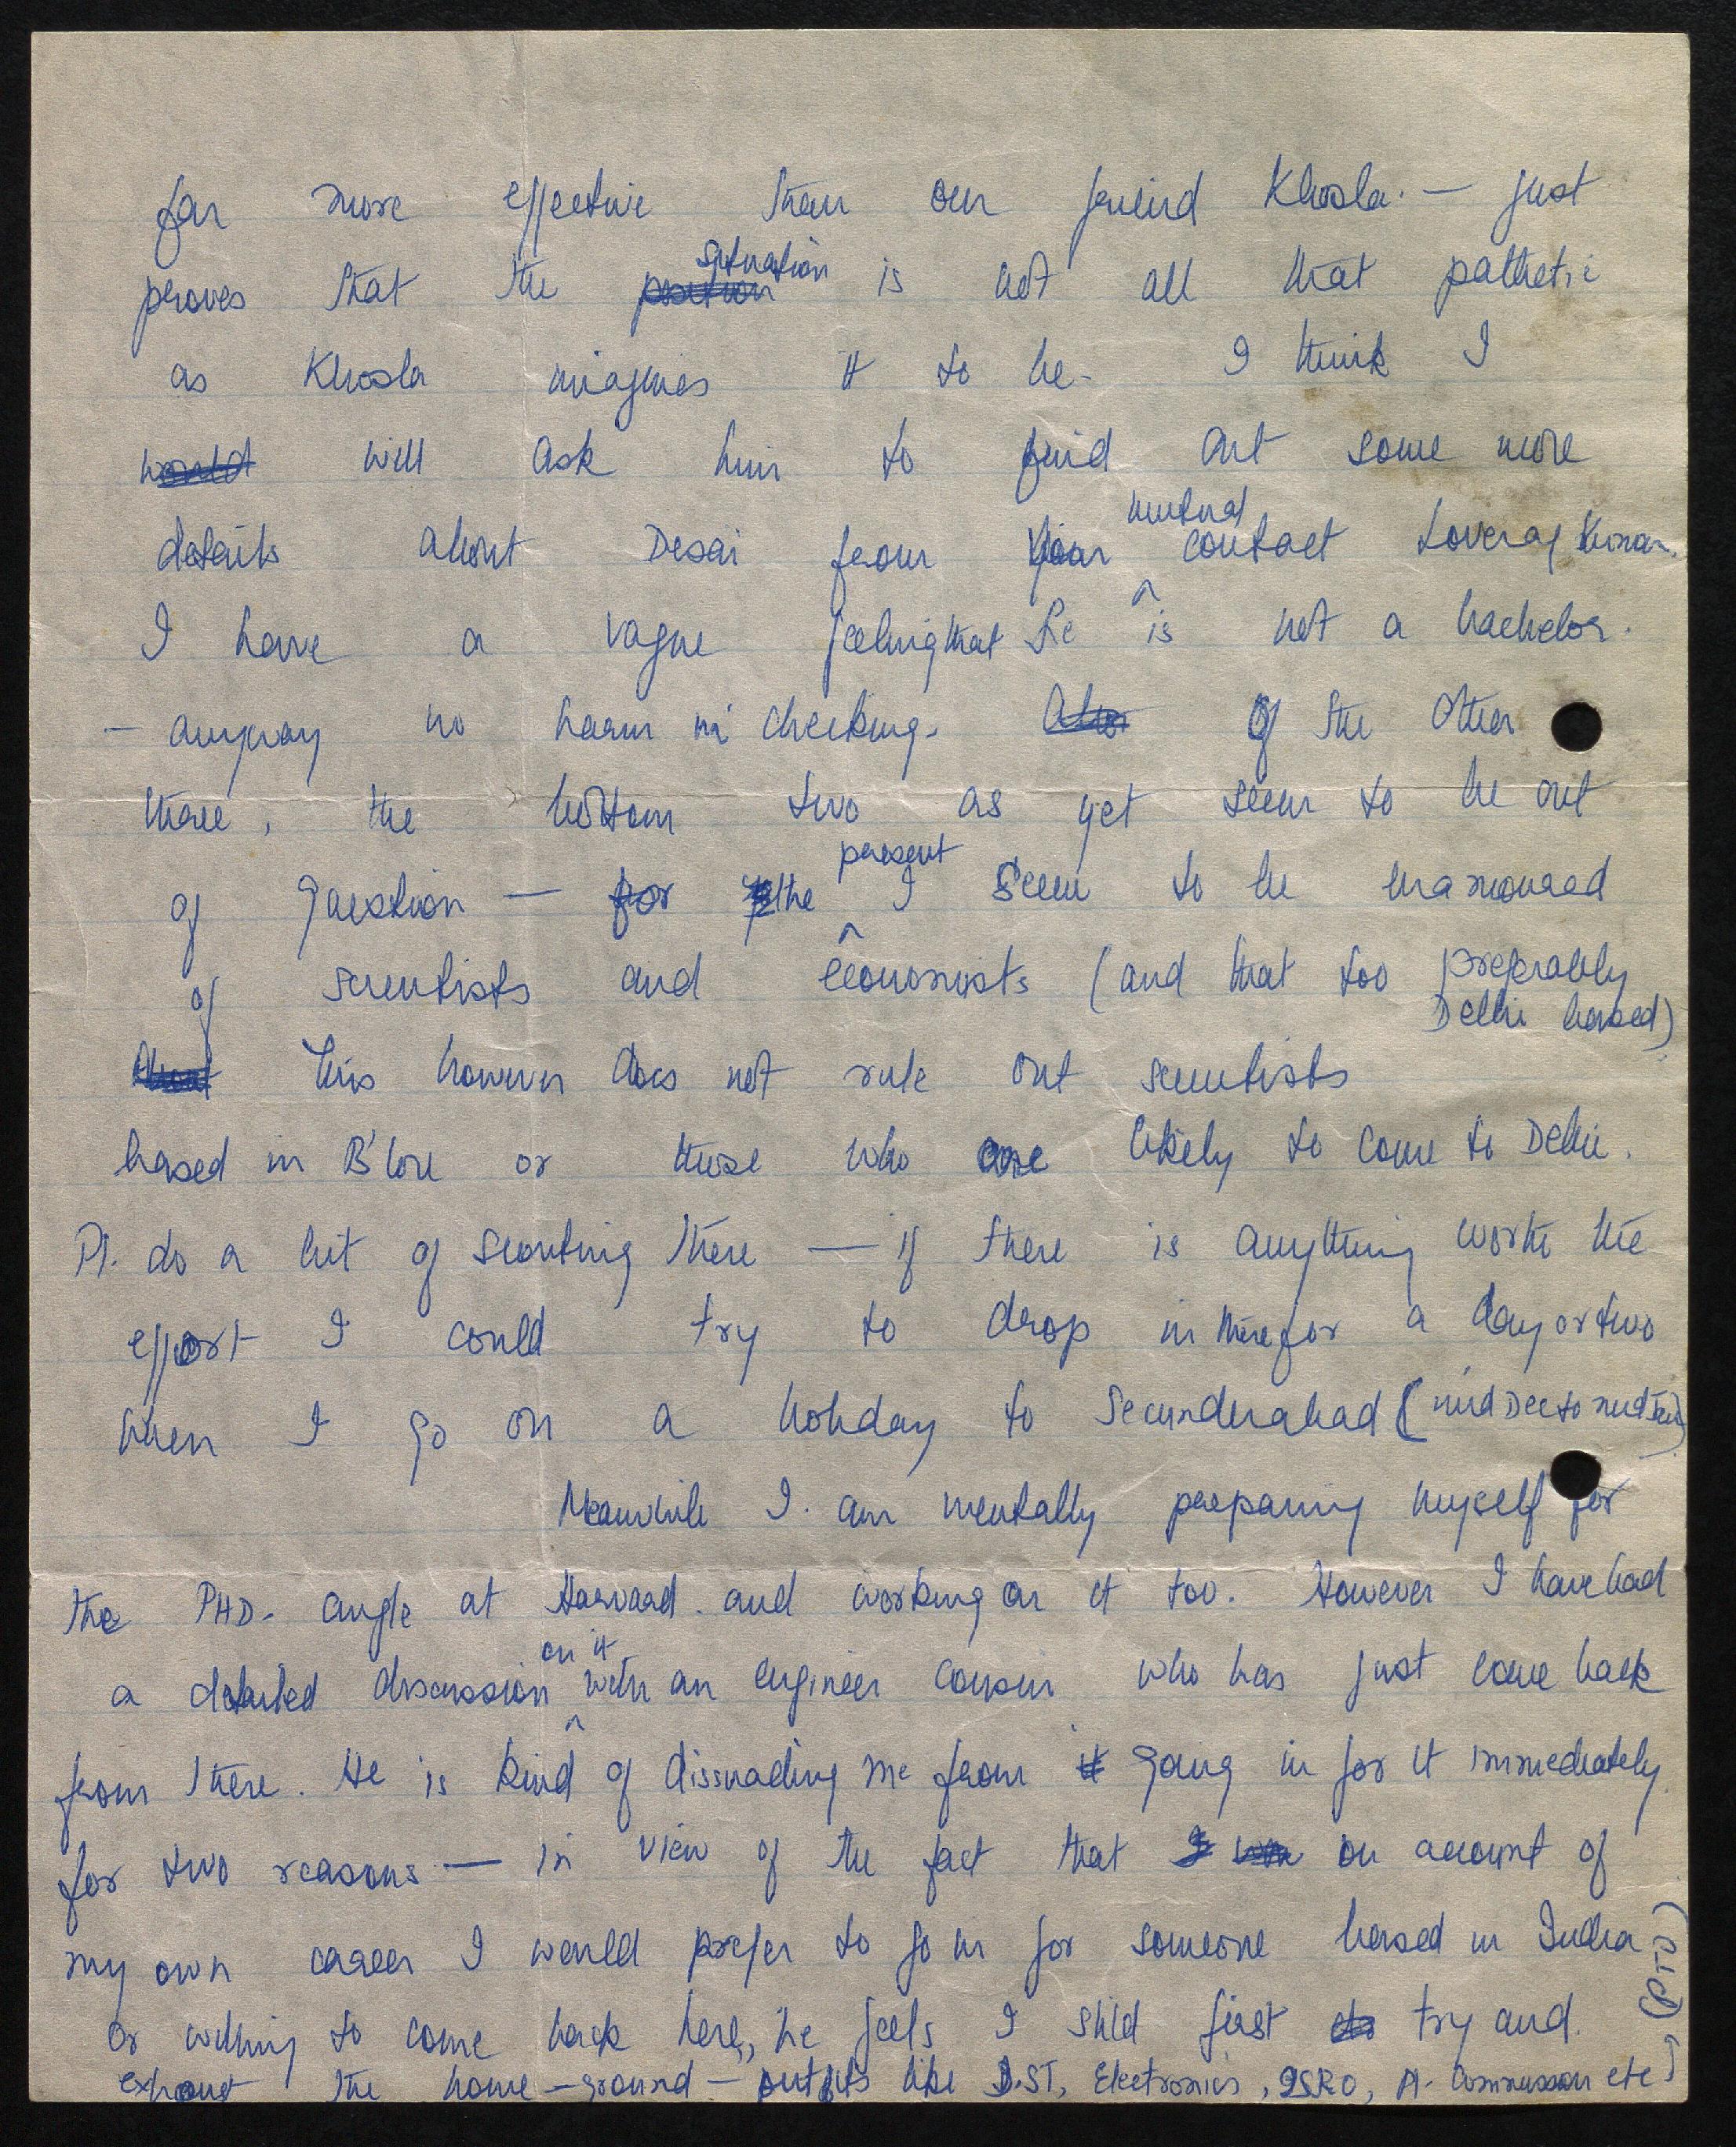 far more effective than our friend Khosla. — just
proves that the position situation is not all that pathetic
as Khosla imagines it to be. I think I
would will ask him to find out some more
details about Desai from your mutual contact
I have a vague feeling that he is not a bachelor.
— anyway no harm in checking. Also Of the other
three, the bottom two as yet seem to be out
of question — for the present I seem to be enamoured
of scientists and economists (and that too preferably
Delhi based)
This however does not rule out scientists
based in B'lore or those who are likely to come to Delhi.
Pl. do a bit of scouting there — if there is anything worth the
effort I could try to drop in there for a day or two
when I go on a holiday to Secunderabad (mid Dec to mid Jan)
Meanwhile I am mentally preparing myself for
the PHD. angle at Harvard. and working on it too. However I have had
a detailed discussion on it with an engineer cousin who has just come back
from there. He is kind of dissuading me from it going in for it immediately
for two reasons — in view of the fact that I on account of
my own career I would prefer to go in for someone based in India
or willing to come back here, he feels I shld first try and
exhaust the home-ground — outfits like D.ST, Electronics, ISRO, A. Commission etc)
(PTO)